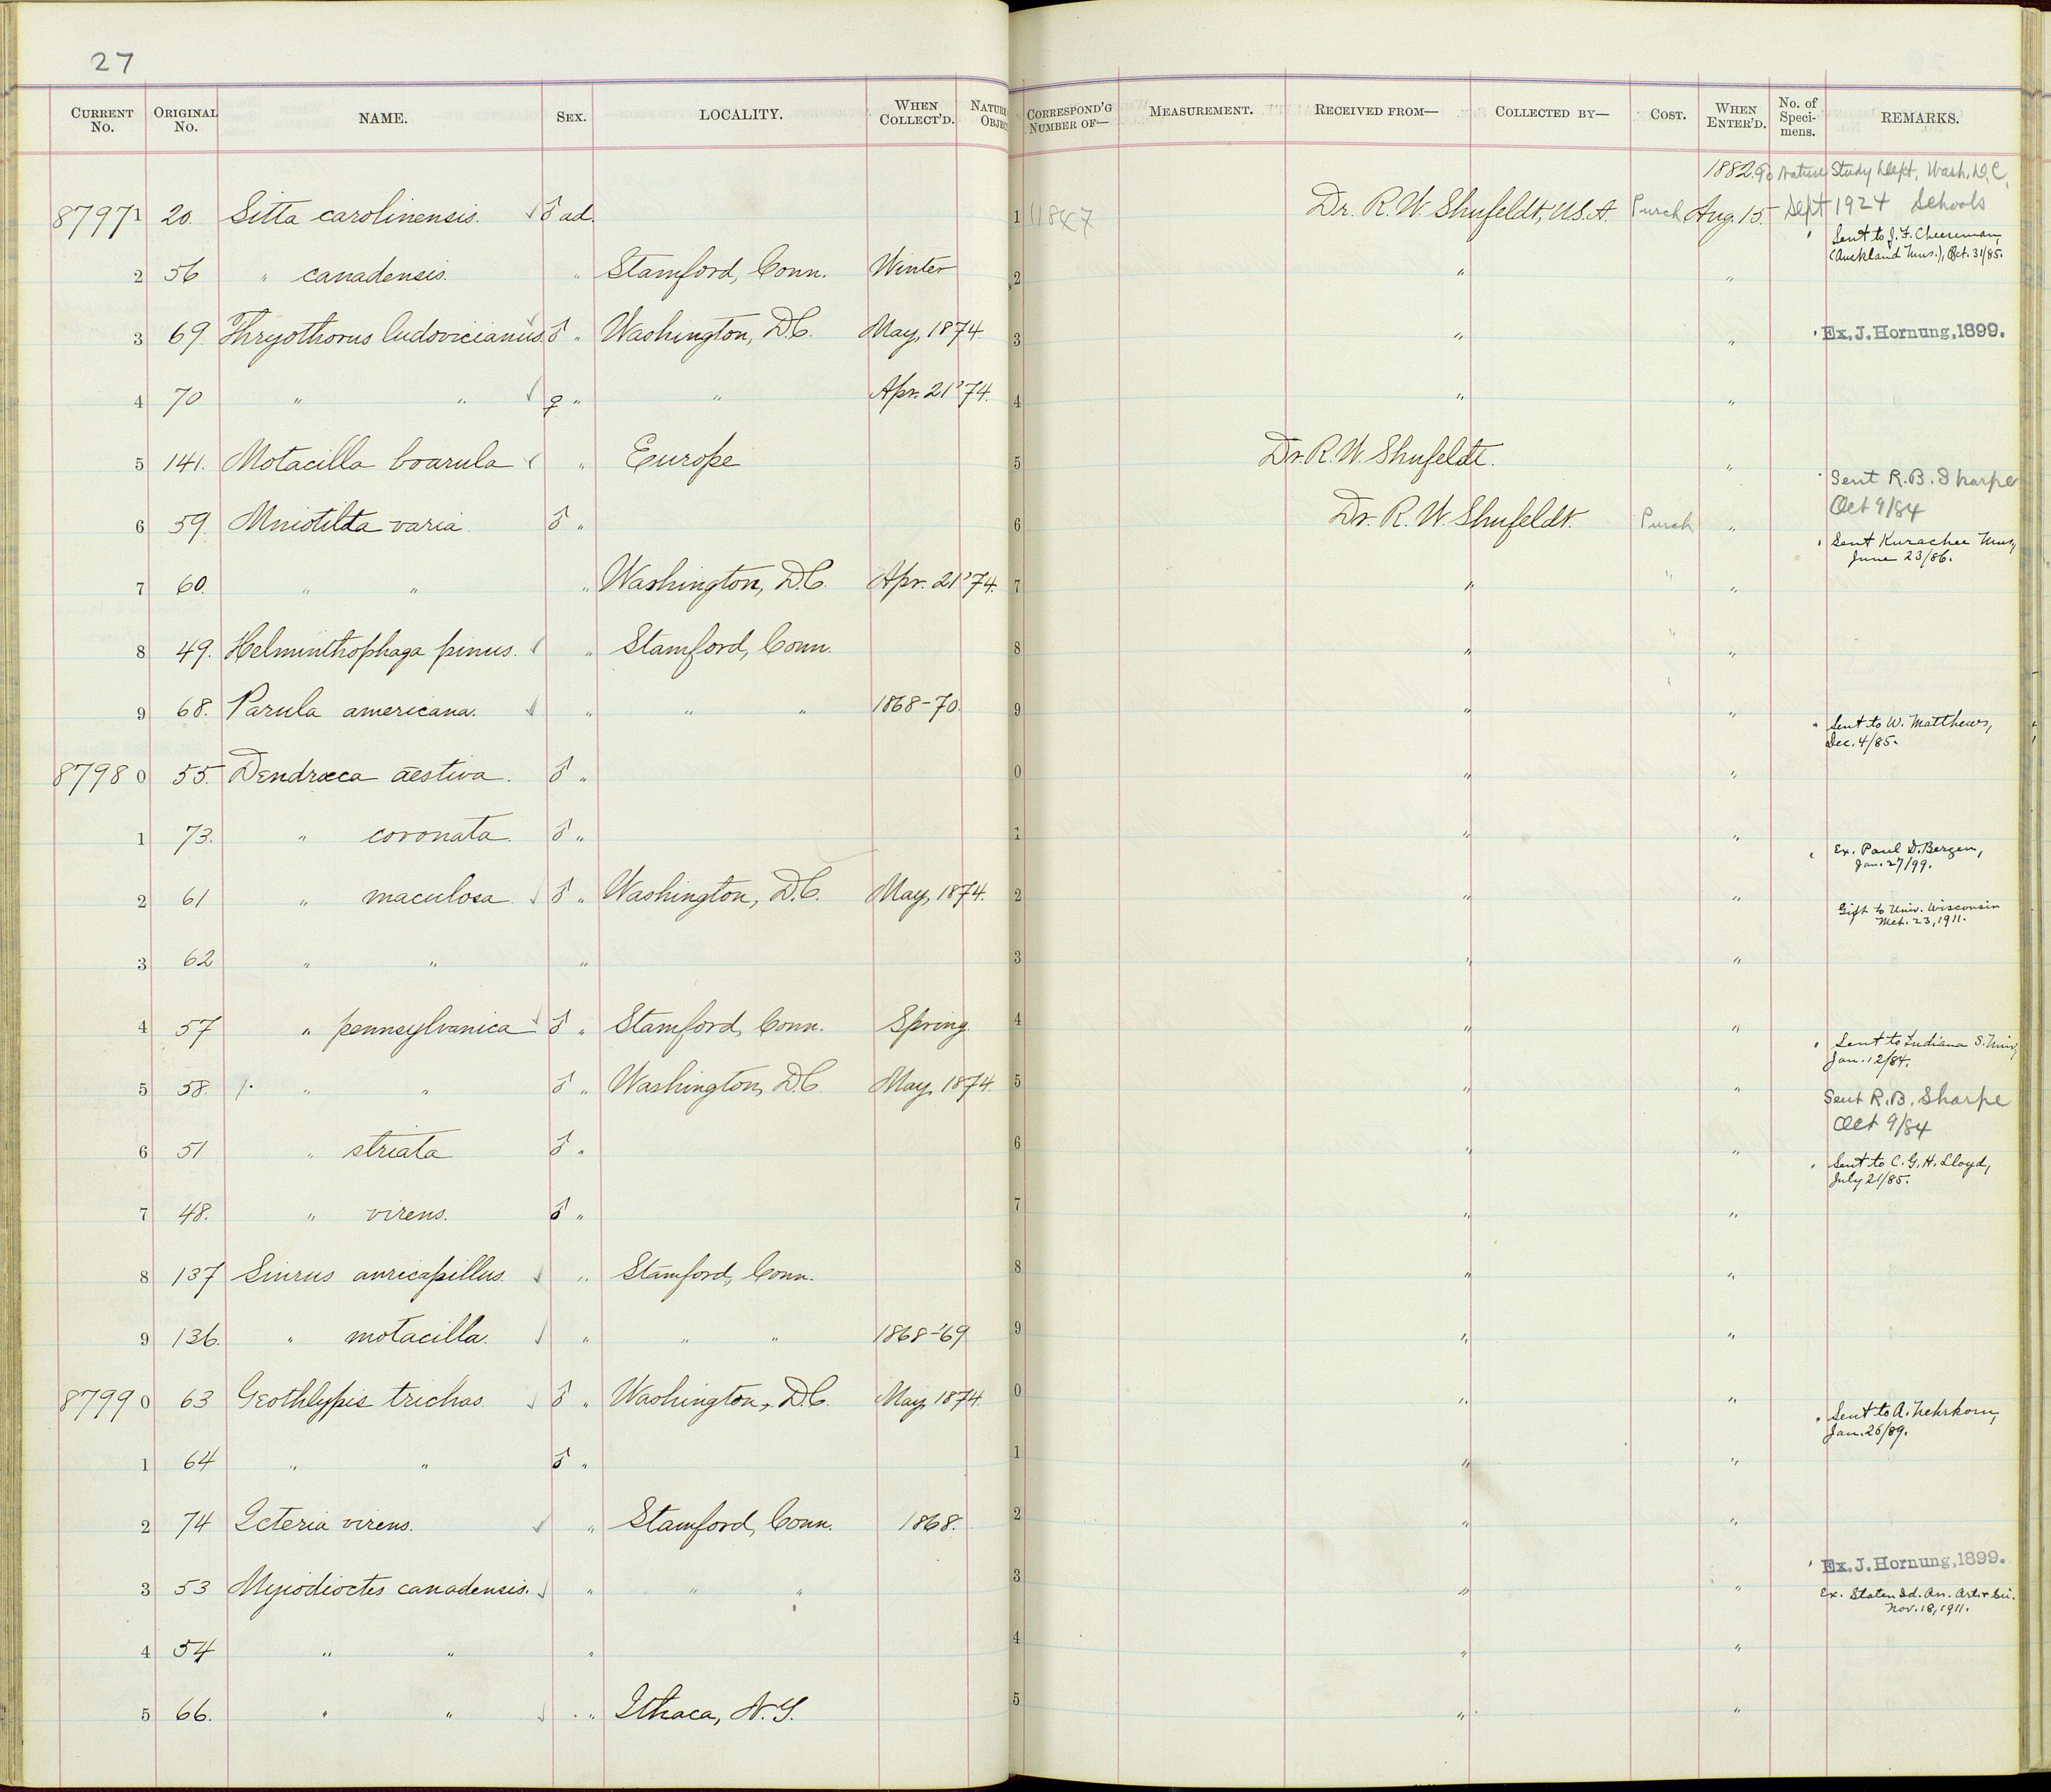 27
CURRENT No. ORIGINAL No. NAME. SEX. LOCALITY. WHEN COLLECT'D. NATURE OBJECT CORRESPOND'G NUMBER OF— MEASUREMENT. RECEIVED FROM— COLLECTED BY— COST. WHEN ENTER'D. No. of Speci-mens. REMARKS.
1882. To Nature Study Dept. Wash. D.C.
87971 20. Sitta carolinensis. ✓ ♂ ad. 1 11847 Dr. R. W. Shufeldt, U.S.A. Purch Aug. 15. Sept 1924 Schools
Sent to J. F. Cheeseman,
(Auckland Mus.), Oct. 31/85.
2 56 " canadensis. " Stamford, Conn. Winter 2 " "
3 69 Thryothorus ludovicianus. ✓ ♂ " Washington, D.C. May, 1874. 3 " " Ex. J. Hornung, 1899.
4 70 " " ✓ ♀ " " Apr. 21 '74. 4 " "
5 141. Motacilla boarula ✓ " Europe 5 Dr. R. W. Shufeldt. "
Sent R. B. Sharpe
Oct 9/84
6 59. Mniotilta varia. ♂ " 6 Dr. R. W. Shufeldt. Purch "
Sent Kurachee Mus,
June 23/86.
7 60. " " " Washington, D.C. Apr. 21 '74. 7 " " "
8 49. Helminthophaga pinus. ✓ " Stamford, Conn. 8 " " "
9 68. Parula americana. ✓ " " " 1868-70. 9 " " "
Sent to W. Matthews,
Dec. 4/85.
87980 55. Dendrœca æstiva. ♂ " 0 " "
1 73. " coronata. ♂ " 1 " "
Ex. Paul D. Bergen,
Jan. 27/99.
2 61 " maculosa ✓ ♂ " Washington, D.C. May, 1874. 2 " "
Gift to Univ. Wisconsin
Mch. 23, 1911.
3 62 " " " 3 " "
4 57 " pennsylvanica ✓ ♂ " Stamford, Conn. Spring. 4 " "
Sent to Indiana S. Univ,
Jan. 12/84.
5 58. " " ♂ " Washington, D.C. May, 1874. 5 " "
Sent R. B. Sharpe
Oct 9/84
6 51 " striata ♂ " 6 " "
Sent to C. G. H. Lloyd,
July 21/85.
7 48. " virens. ♂ " 7 " "
8 137 Siurus auricapillus. ✓ " Stamford, Conn. 8 " "
9 136. " motacilla. ✓ " " " 1868-'69 9 " "
87990 63 Geothlypis trichas. ✓ ♂ " Washington, D.C. May, 1874. 0 " "
Sent to A. Nehrkorn,
Jan. 26/89.
1 64 " " ♂ " 1 " "
2 74 Icteria virens. ✓ " Stamford, Conn. 1868. 2 " "
Ex. J. Hornung, 1899.
3 53 Myiodioctes canadensis. ✓ " " " 3 " "
Ex. Staten Id. An. Arts & Sci.
Nov. 18, 1911.
4 54 " " " 4 " "
5 66. " " ✓ " Ithaca, N.Y. 5 " "